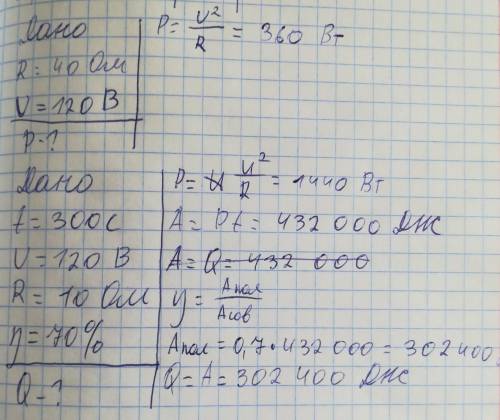 Дано
P = U²/R = 360 Вт
R = 40 Ом
U = 120 В
P - ?
Дано
t = 300 с
U = 120 В
R = 10 Ом
η = 70%
Q - ?
P = U²/R = 1440 Вт
A = Pt = 432 000 Дж
A = Q = 432 000
η = Aпол/Aсов
Aпол = 0,7 * 432 000 = 302 400
Q = A = 302 400 Дж